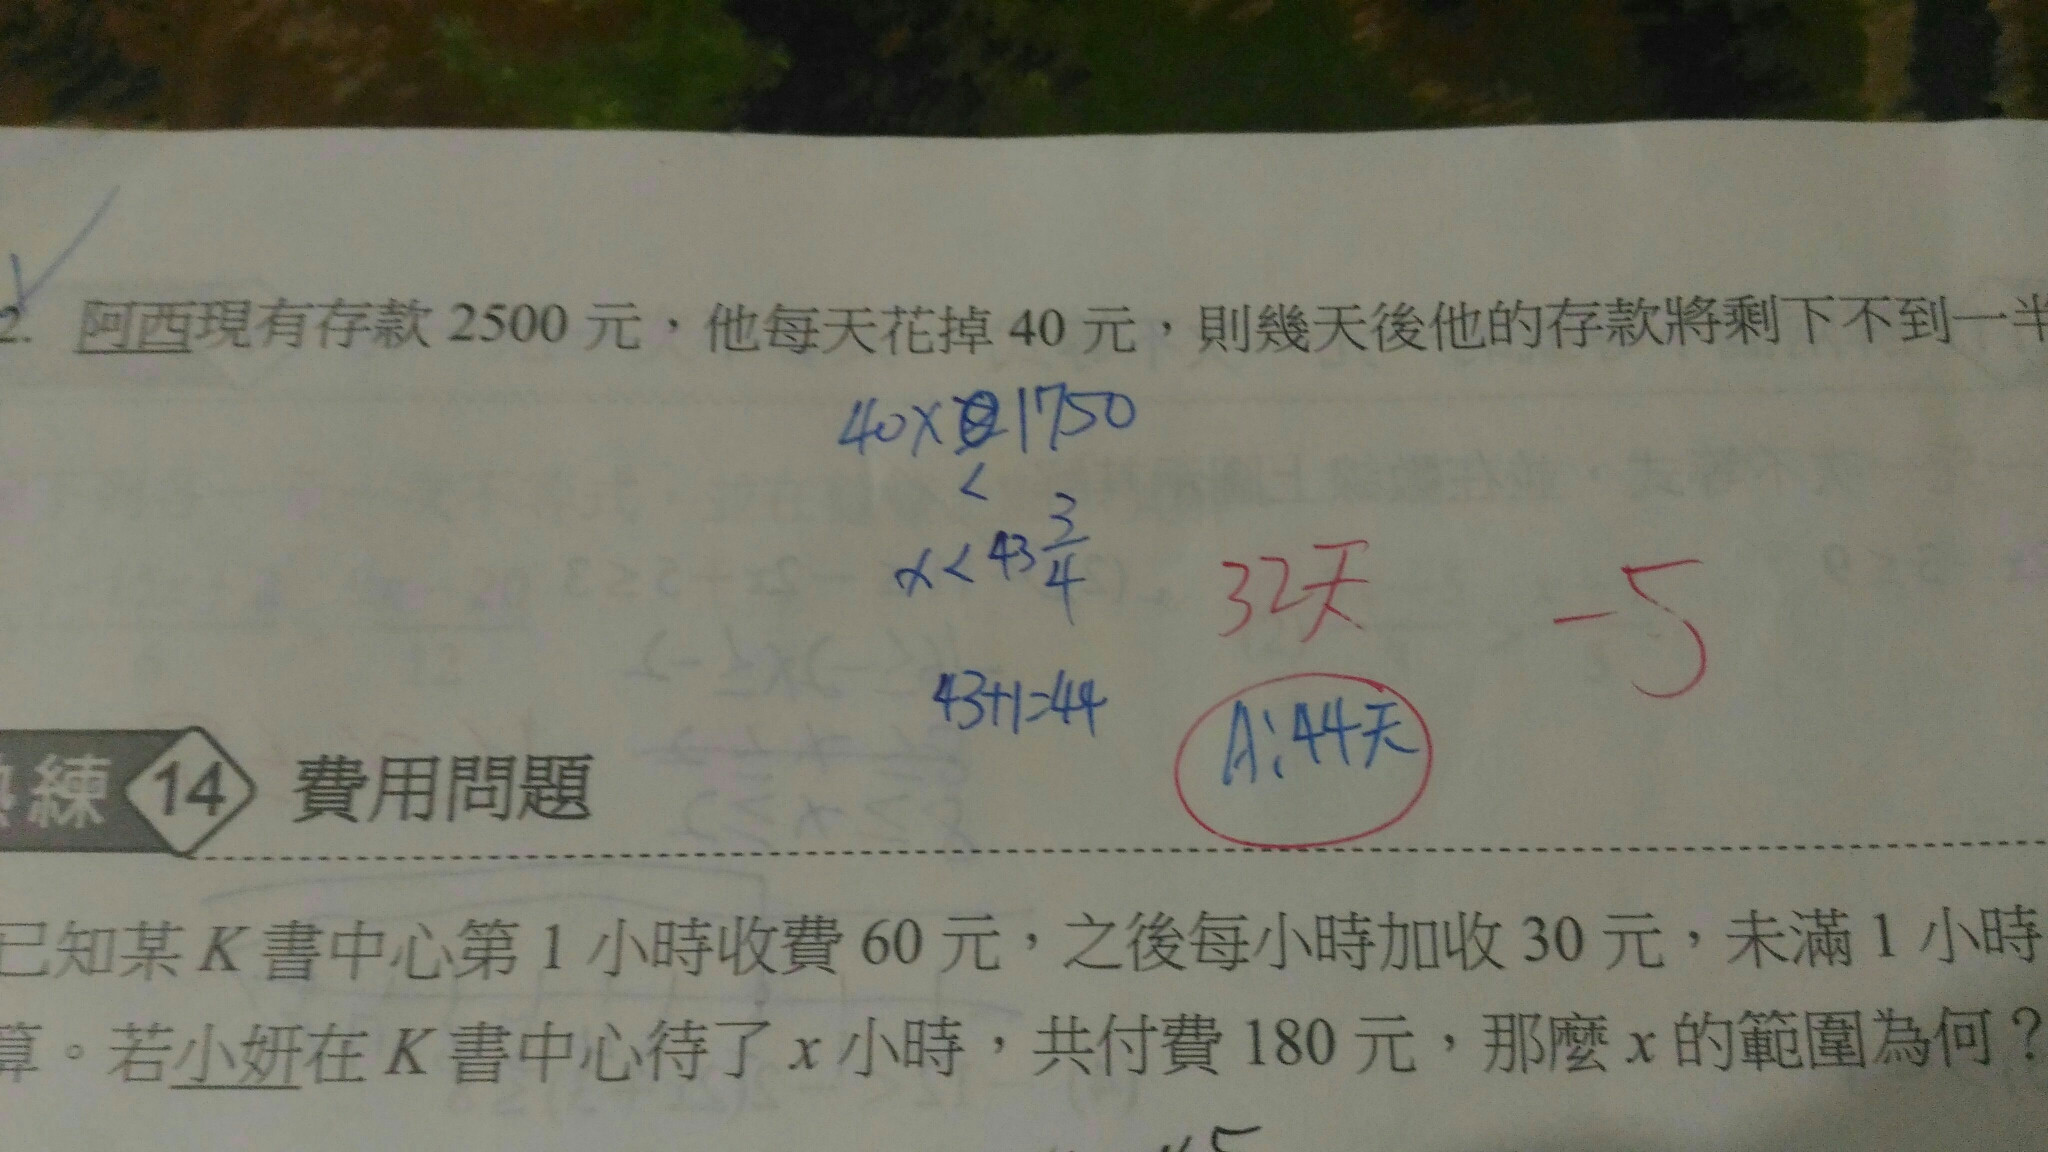 2. 阿西現有存款 2500 元，他每天花掉 40 元，則幾天後他的存款將剩下不到一半
40x 1750
<
x < 43 3/4
32天
-5
43+1=44
A:44天
練 14 費用問題
已知某 K 書中心第 1 小時收費 60 元，之後每小時加收 30 元，未滿 1 小時
算。若小妍在 K 書中心待了 x 小時，共付費 180 元，那麼 x 的範圍為何？